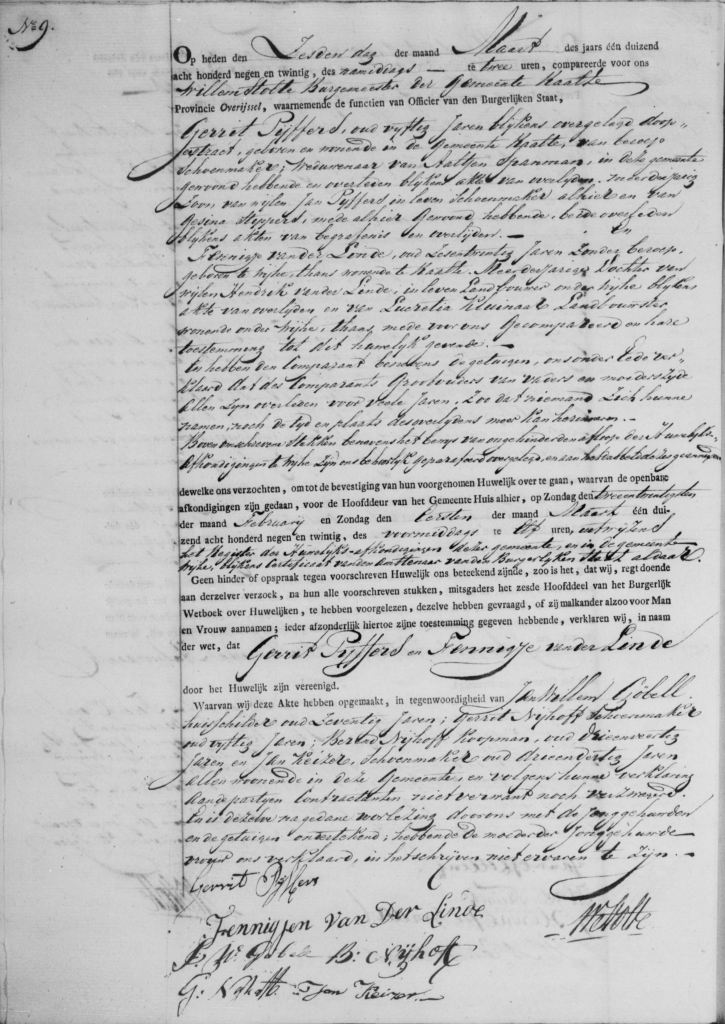 No 9.
Op heden den Zesden dag der maand Maart des jaars één duizend
acht honderd negen en twintig, des namiddags te twee uren, compareerde voor ons
Willem Stolte Burgemeester der Gemeente Raalte
Provincie Overijssel, waarnemende de functien van Officier van den Burgerlijken Staat,
Gerrit Pijffers, oud vyftig Jaren blykens overgelegd doop-
extract, geboren en wonende in de Gemeente Raalte, van beroep
Schoenmaker; Weduwenaar van Aaltjen Spanman, in deze gemeente
gewoond hebbende en overleden blykens akte van overlyden. meerderjarig
Zoon van wylen Jan Pyffers in leven Schoenmaker alhier en van
Gesina Stappers, mede alhier Gewoond hebbende, beide overleden
blykens akten van begrafenis en overlyden. — En
Fennigje van der Linde, oud Zesentwintig Jaren Zonder beroep,
geboren te Wyhe, thans wonende te Raalte. Meerderjarige Dochter van
wylen Hendrik van der Linde, in leven Landbouwer onder Wyhe blykens
akte van overlyden en van Lucretia Kluinaar Landbouwster
wonende onder Wyhe, thans mede voor ons Gecompareerd en hare
toestemming tot dit huwelyk gevende. —
En hebben den Comparant benevens de getuigen, ons onder Eede ver-
klaard dat des Comparants Grootouders van vaders en moeders zyde
allen Zyn overleden voor vele Jaren, Zoo dat niemand Zich hunne
namen, noch de tyd en plaats des overlydens meer kan herinneren. —
Boven omschreven Stukken benevens het bewys van ongehinderden afloop der Huwelyks-
Afkondigingen te Wyhe Zyn ons behoorlyk geparafeerd overgelegd, en aan
dewelke ons verzochten, om tot de bevestiging van hun voorgenomen Huwelijk over te gaan, waarvan de openbare
afkondigingen zijn gedaan, voor de Hoofddeur van het Gemeente Huis alhier, op Zondag den tweeentwintigsten
der maand February en Zondag den Eersten der maand Maart één dui-
zend acht honderd negen en twintig, des voormiddags te Elf uren, uitwyzens
het Register der Huwelyks-afkondigingen dezer gemeente, en in de gemeente
Wyhe, blykens Certificaat van den Ambtenaar van den Burgerlyken Staat aldaar.
Geen hinder of opspraak tegen voorschreven Huwelijk ons beteekend zijnde, zoo is het, dat wij, regt doende
aan derzelver verzoek, na hun alle voorschreven stukken, mitsgaders het zesde Hoofddeel van het Burgerlijk
Wetboek over Huwelijken, te hebben voorgelezen, dezelve hebben gevraagd, of zij malkander alzoo voor Man
en Vrouw aannamen; ieder afzonderlijk hiertoe zijne toestemming gegeven hebbende, verklaren wij, in naam
der wet, dat Gerrit Pyffers en Fennigje van der Linde
door het Huwelijk zijn vereenigd.
Waarvan wij deze Akte hebben opgemaakt, in tegenwoordigheid van Jan Willem Göbell
huisschilder oud Zeventig Jaren; Gerrit Nyhoff Schoenmaker
oud vyftig Jaren; Berend Nyhoff Koopman, oud drieenveertig
Jaren en Jan Keizer, Schoenmaker oud drieendertig Jaren
allen wonende in deze Gemeente, en volgens hunne verklaring
aan de partyen Contractanten niet vermant noch verzwagerd.
En is dezelve na gedane voorlezing door ons met de Jonggehuwden
en de getuigen ondertekend; hebbende de moeder der Jonggehuwde
vrouw ons verklaard, in het schryven niet ervaren te Zyn. —
Gerrit Pyffers
Fennigjen Van Der Linde
WStolte
J. W. Göbell B: Nijhoff
G: Nyhoff Jan Keizer